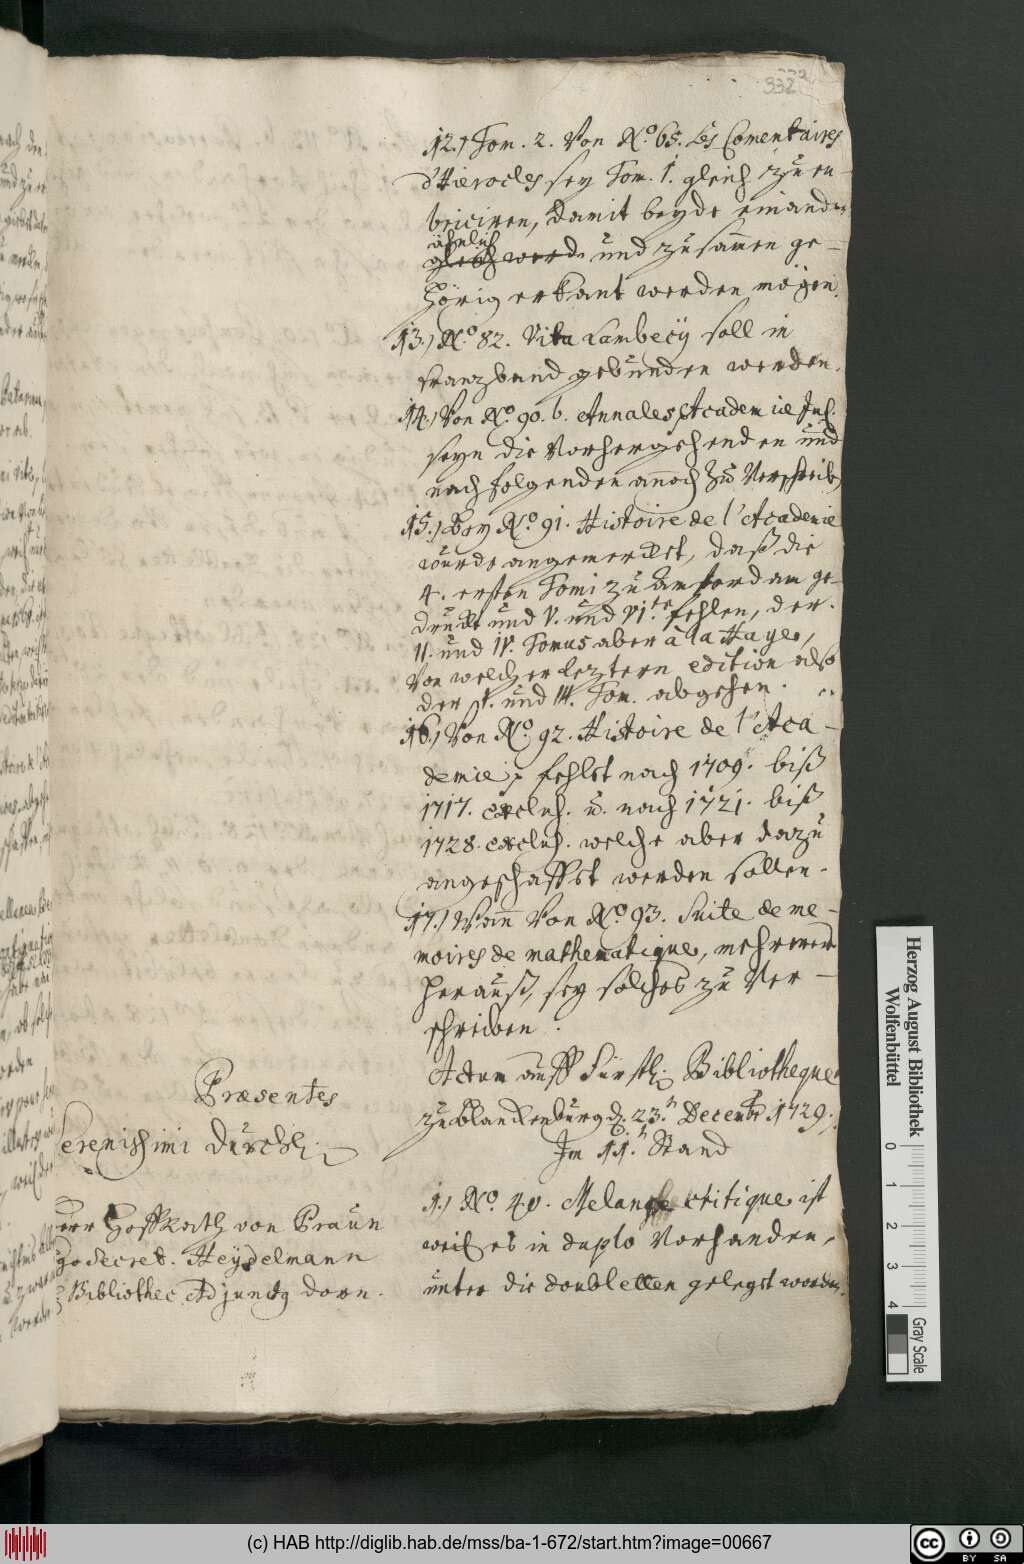 332
12.) Tom. 2. von No. 65. Les Comentaires
d'Hierocles sey Tom. 1. gleich zu ru-
briciren, damit beyde einander
ähnlich
gleich werde und zusamen ge-
hörig erkant werden mögen.
13.) No. 82. Vita Lambecÿ soll in
Franzband gebunden werden.
14.) Von No. 90. b. Annales Academiæ Jul.
seyn die vorhergehenden und
nachfolgenden annoch zu verschreiben
15.) Bey No. 91. Histoire de l'Academie
wurde angemerket, daß die
4. ersten Tomi zu Amsterdam ge-
druckt und V. und VI.te fehlen, der
II. und IV. Tomus aber à la Haye,
von welcher leztern edition also
der I. und III. Tom. abgehen.
16.) Von No. 92. Histoire de l'Aca-
demie p fehlet nach 1709. biß
1717. exclus. u. nach 1721. biß
1728. exclus. welche aber dazu
angeschafft werden sollen.
17.) Wann von No. 93. Suite de me-
moires de mathematique, mehrere
herauß, sey solches zu ver-
schreiben.
Actum auff Fürstl. Bibliotheque
zu Blanckenburg d. 23.n Decembr. 1729.
Im 11.n Stand
1.) No. 40. Melange critique ist
weil es in duplo vorhanden,
unter die doubletten gelegt worden.
Præsentes
Serenissimi Durchl.
Herr Hoffrath von Praun
Heydelmann
Bibliothec. Adjunctg Dorn.
Herzog August Bibliothek
Wolfenbüttel
0 1 2 3 4
Gray Scale
(c) HAB http://diglib.hab.de/mss/ba-1-672/start.htm?image=00667
cc BY SA